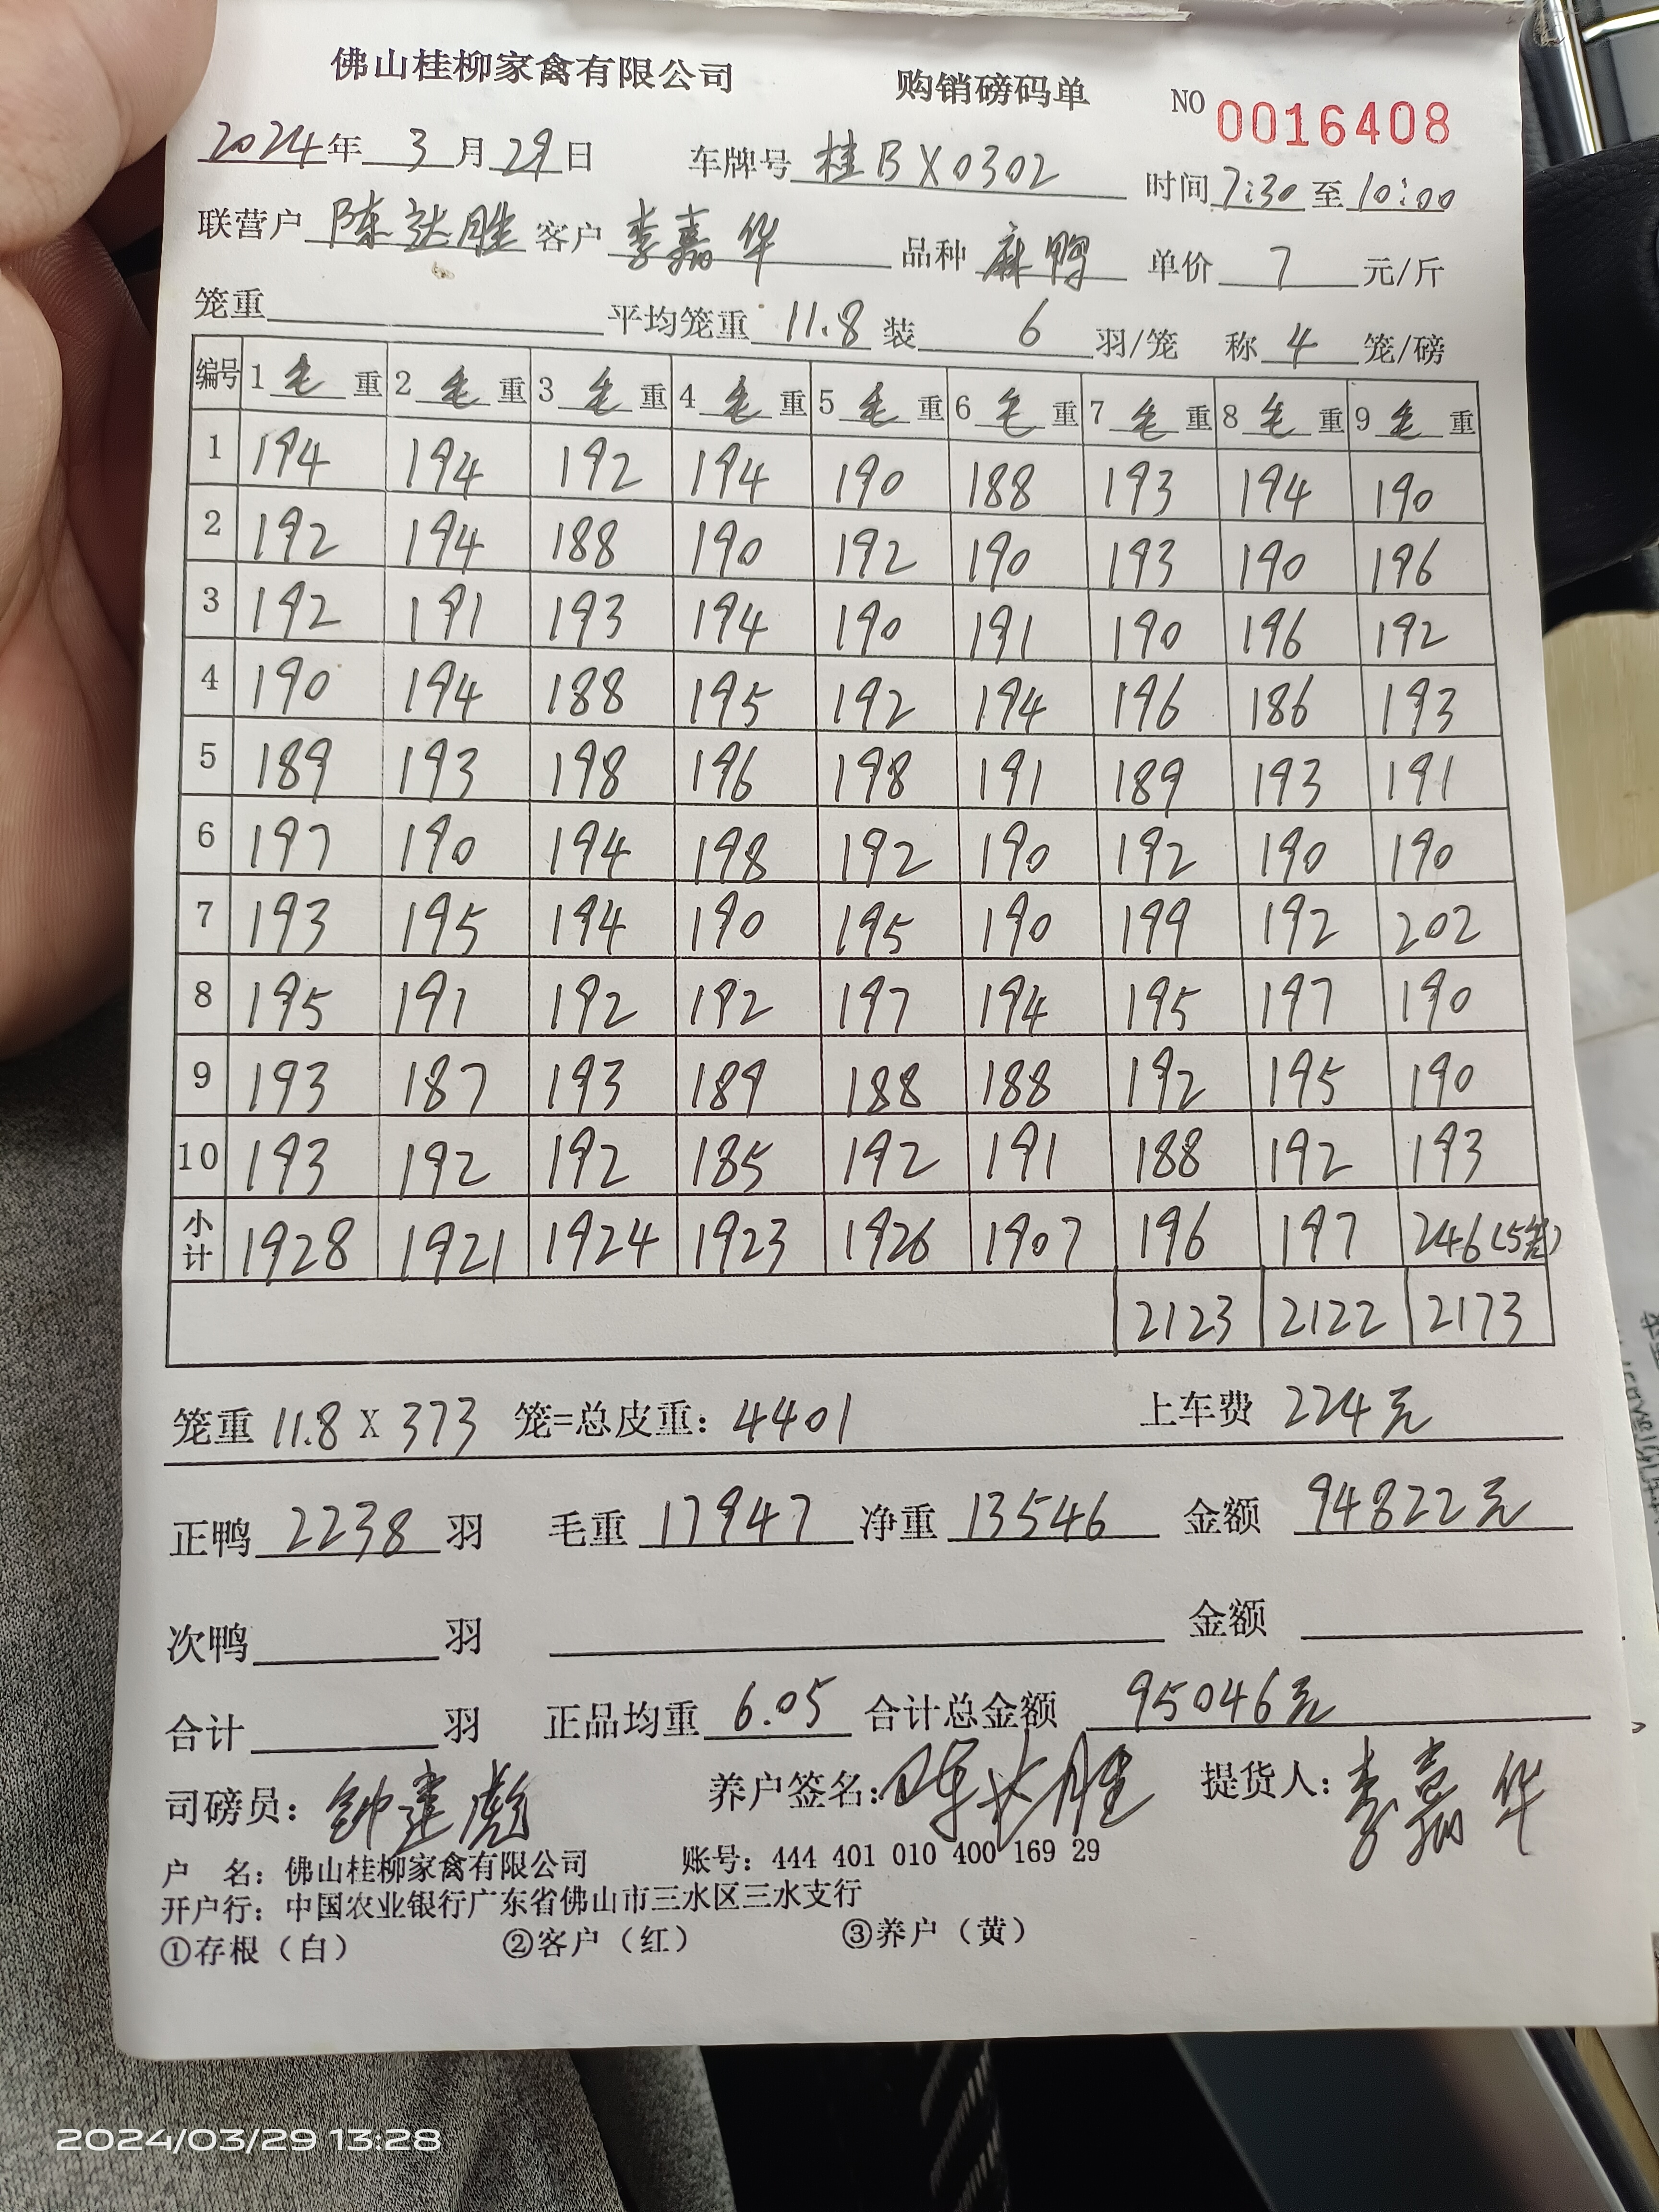 佛山桂柳家禽有限公司 购销磅码单 NO 0016408
2024年 3月29日 车牌号 桂BX0302 时间 7:30 至 10:00
联营户 陈达胜 客户 李嘉华 品种 麻鸭 单价 7 元/斤
笼重 平均笼重 11.8 装 6 羽/笼 称 4 笼/磅
编号 1 毛 重 2 毛 重 3 毛 重 4 毛 重 5 毛 重 6 毛 重 7 毛 重 8 毛 重 9 毛 重
1 194 194 192 194 190 188 193 194 190
2 192 194 188 190 192 190 193 190 196
3 192 191 193 194 190 191 190 196 192
4 190 194 188 195 192 194 196 186 193
5 189 193 198 196 198 191 189 193 191
6 197 190 194 198 192 190 192 190 190
7 193 195 194 190 195 190 199 192 202
8 195 191 192 192 197 194 195 197 190
9 193 187 193 189 188 188 192 195 190
10 193 192 192 185 192 191 188 192 193
小计 1928 1921 1924 1923 1926 1907 196 197 246(5笼)
2123 2122 2173
笼重 11.8 X 373 笼=总皮重: 4401 上车费 224元
正鸭 2238 羽 毛重 17947 净重 13546 金额 94822元
次鸭 羽 金额
合计 羽 正品均重 6.05 合计总金额 95046元
司磅员: 钟建彪 养户签名: 陈达胜 提货人: 李嘉华
户 名: 佛山桂柳家禽有限公司 账号: 444 401 010 400 169 29
开户行: 中国农业银行广东省佛山市三水区三水支行
①存根（白） ②客户（红） ③养户（黄）
2024/03/29 13:28